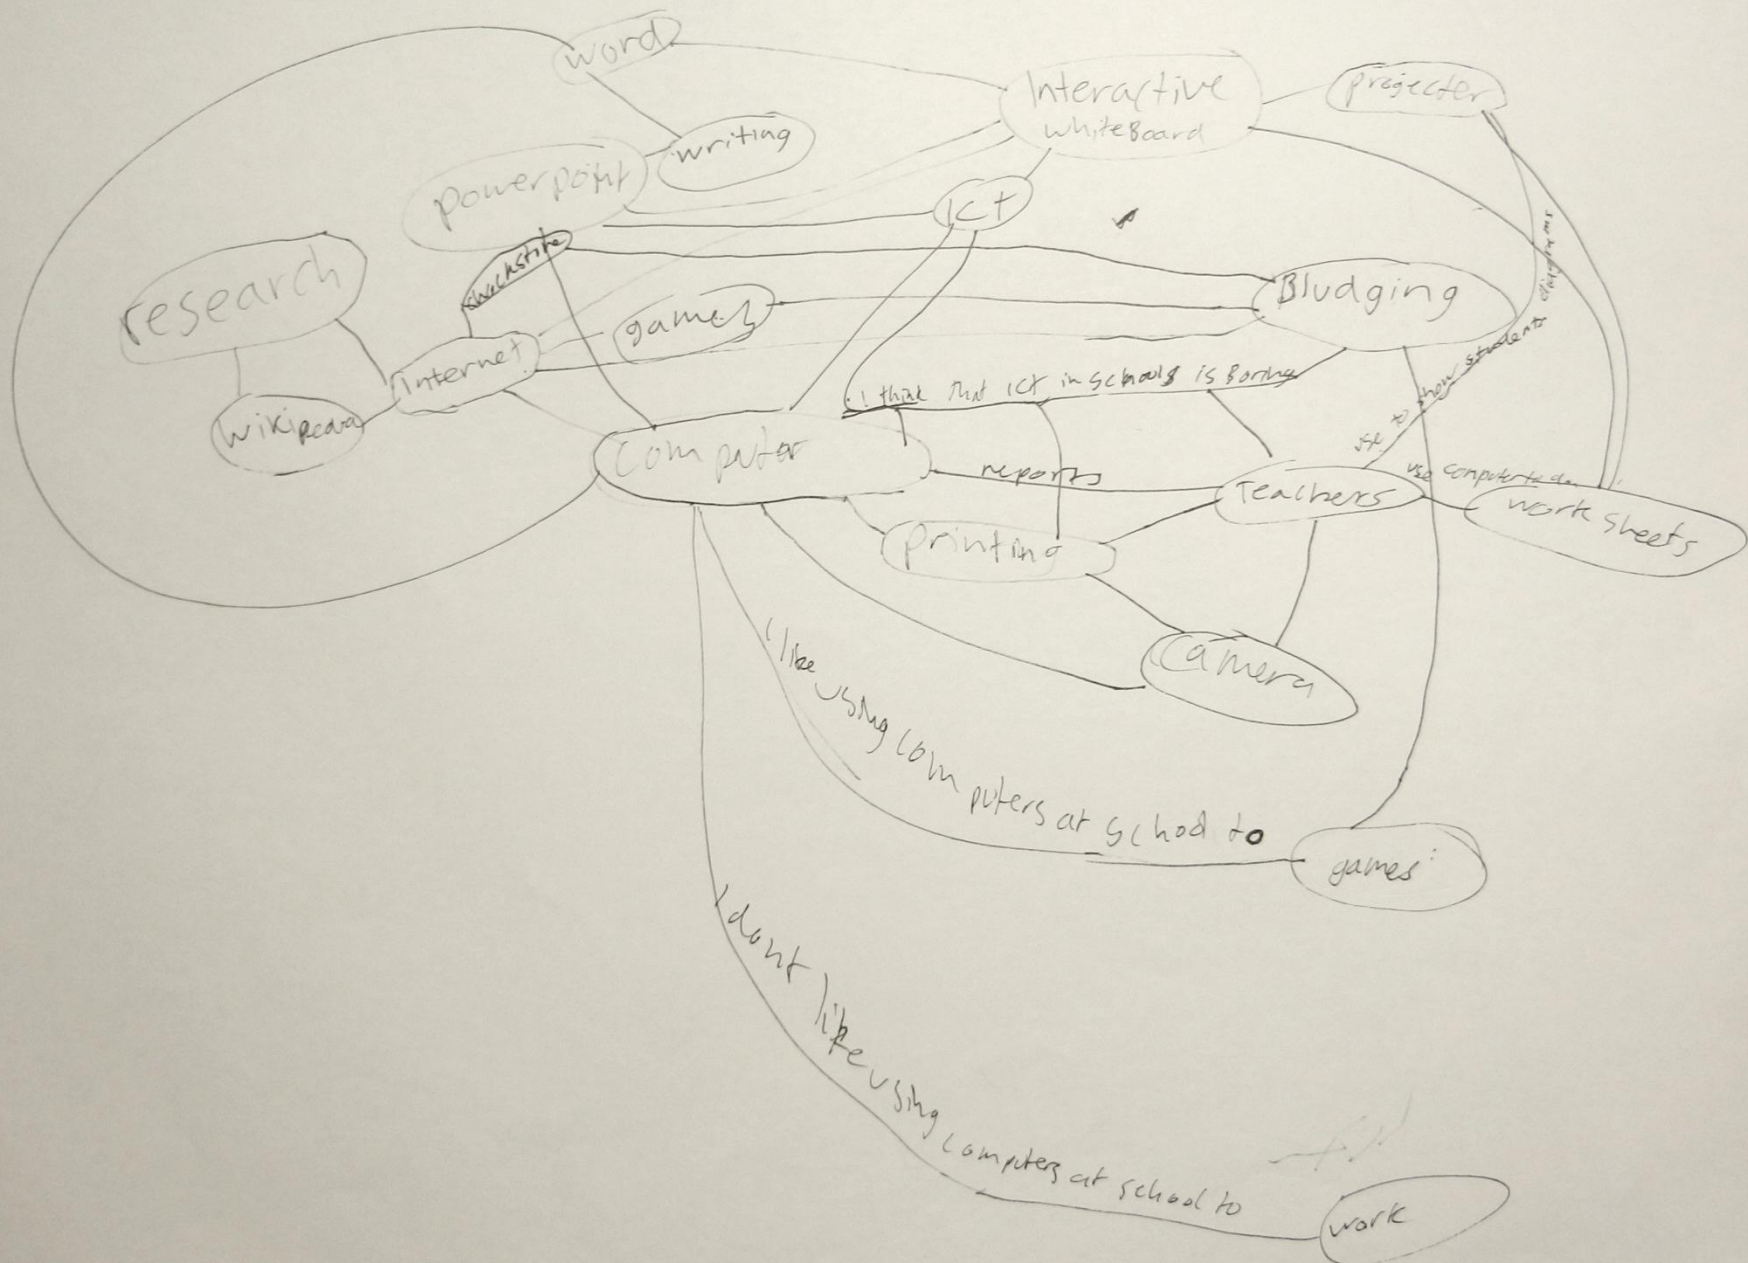 word
Interactive
whiteBoard
projecter
writing
powerpoint
ICT
research
Bludging
games
Internet
wikipedia
I think that ICT in schools is Boring
use to show students
computer
reports
Teachers
use computer to do
work sheets
printing
camera
I like using computers at school to
games
I dont like using computers at school to
work